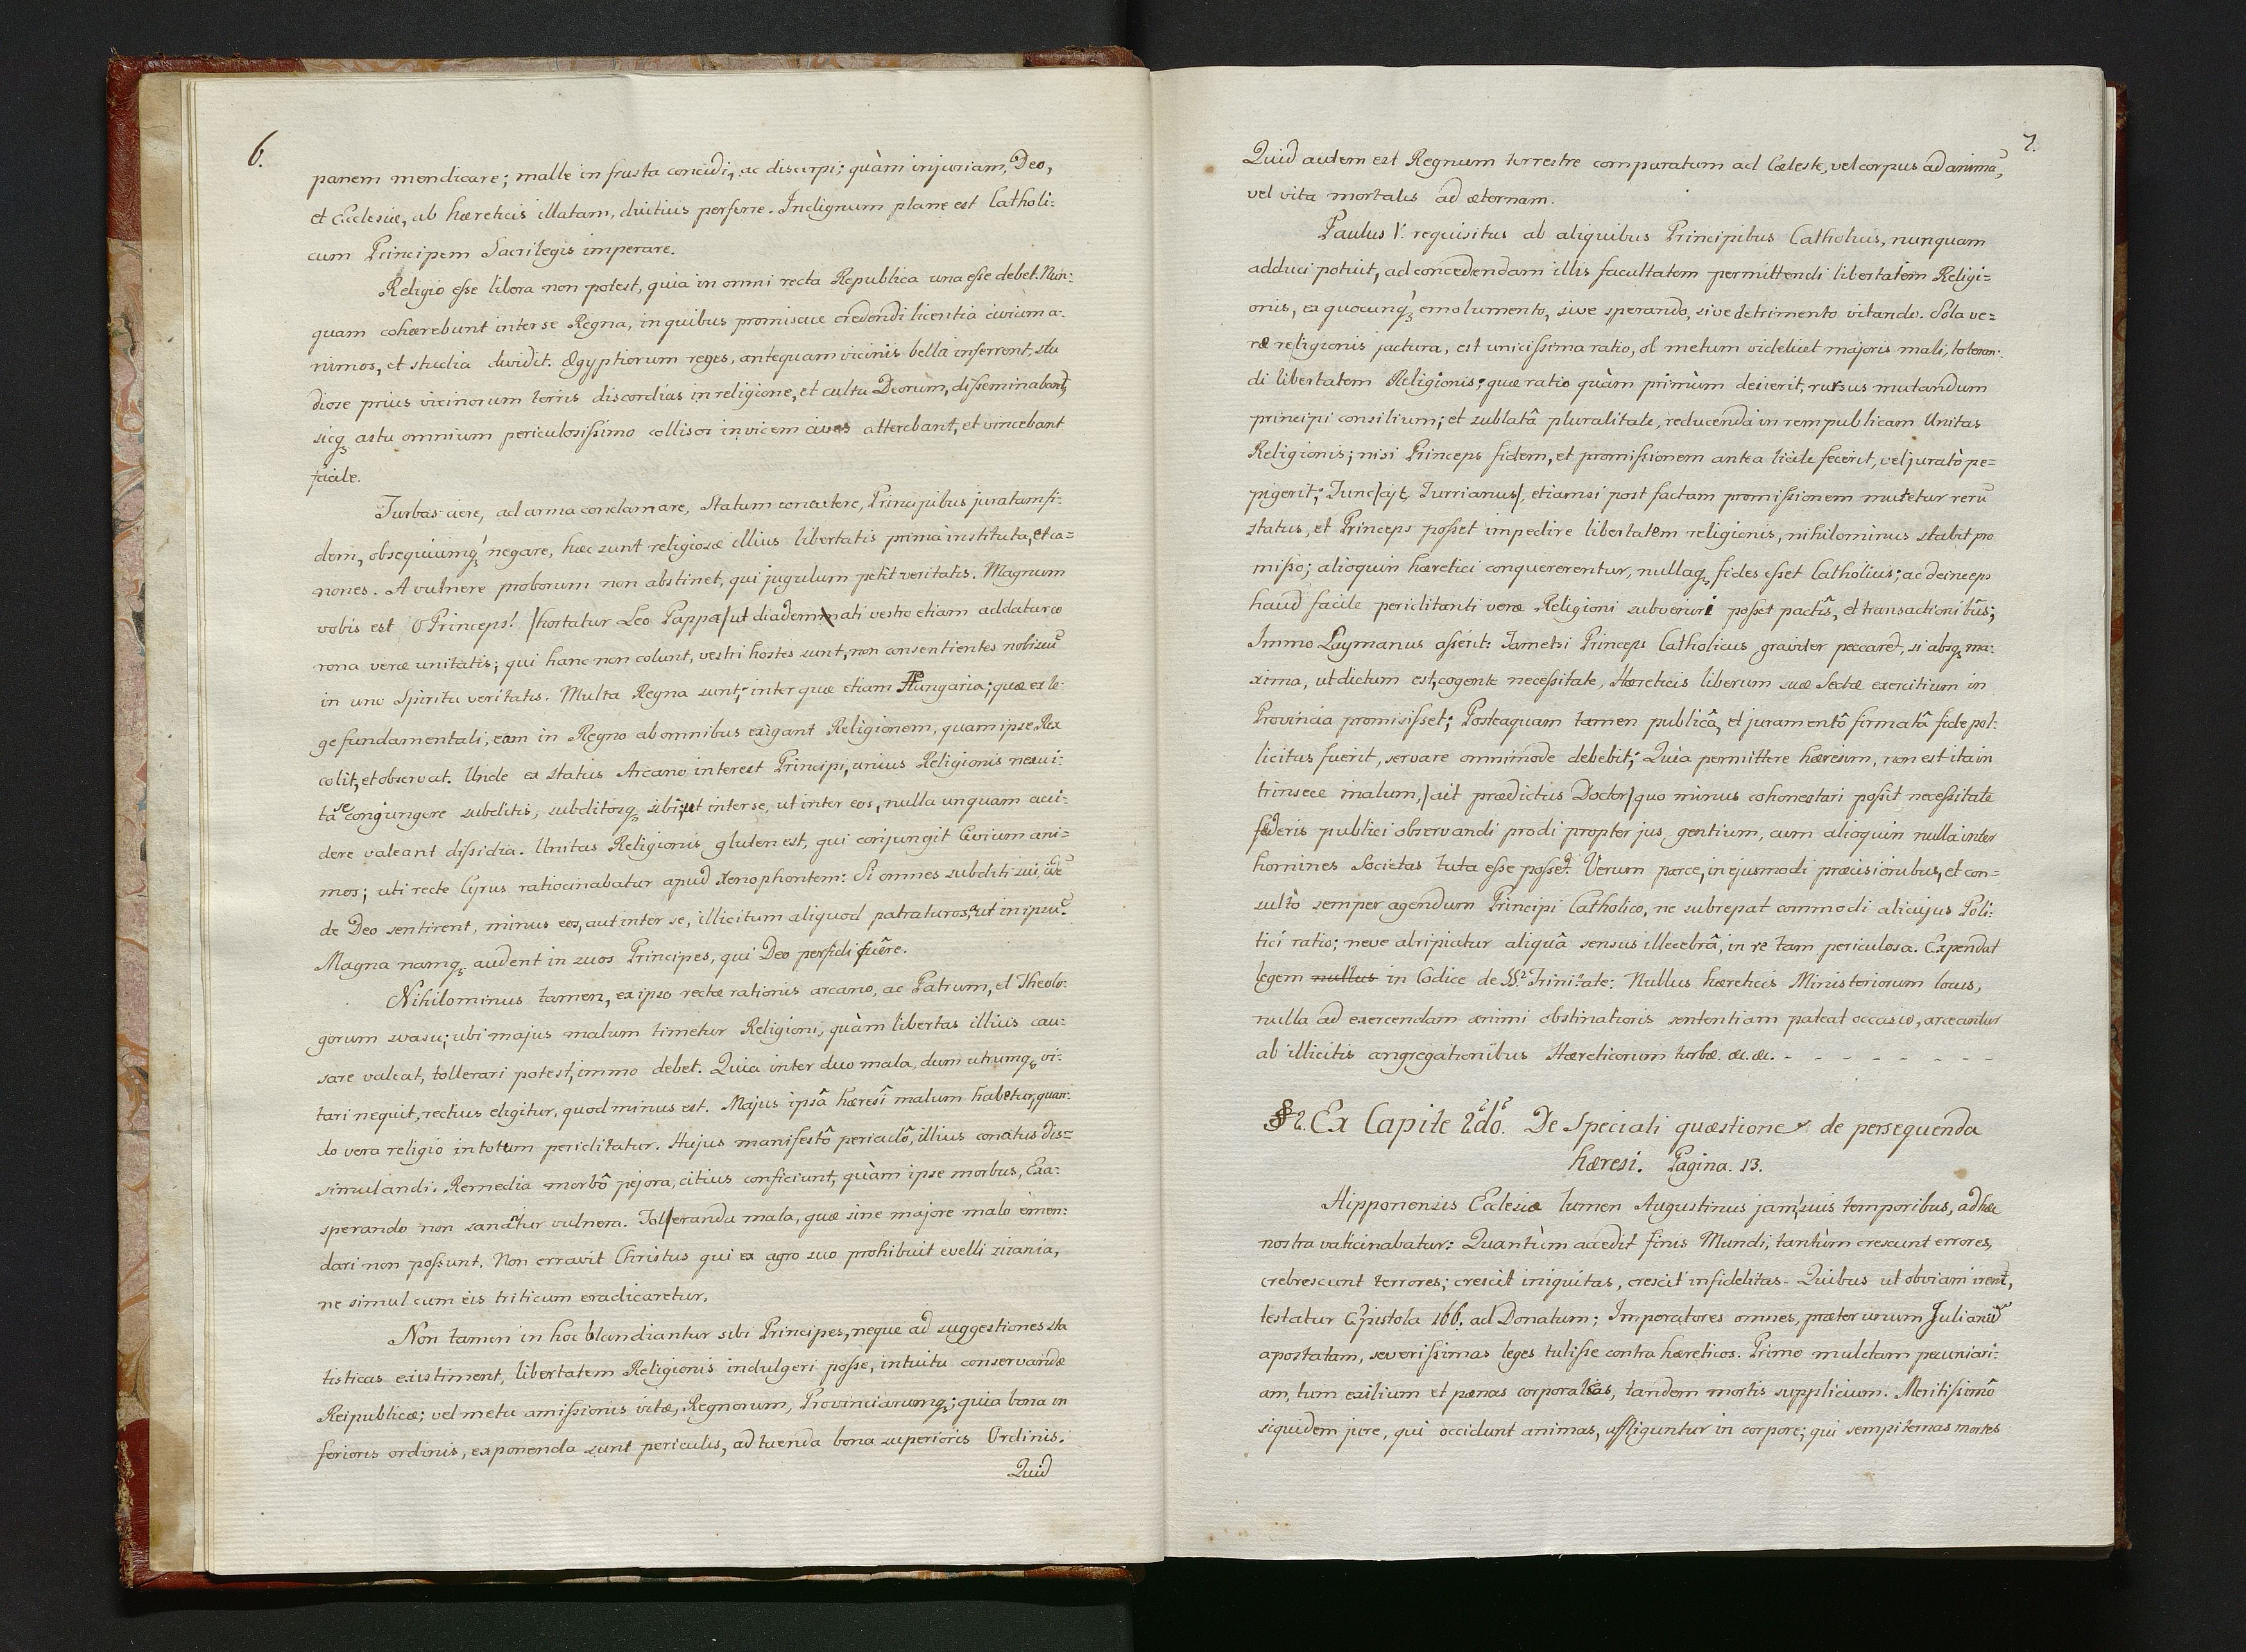 6.
panem mendicare; malle in frusta concidi, ac discerpi; quàm injuriam, Deo,
et Ecclesiæ, ab hæreticis illatam, diutius perferre. Indignum plane est Catholi:
cum Principem Sacrilegis imperare.
Religio esse libera non potest, quia in omni recta Republica una esse debet. Nun:
quam cohærebunt inter se Regna, in quibus promiscue credendi licentia civium a:
nimos, et studia dividit. Ægyptiorum reges, antequam vicinis bella inferrent, stu
diose prius vicinorum terris discordias in religione, et cultu Deorum, disseminabant,
sicq astu omnium periculosissimo collisos invicem cives atterebant, et vincebant
facile.
Turbas ciere, ad arma conclamare, Statum concutere, Principibus juratam fi:
dem, obsequiumq negare, hæc sunt religiosæ illius libertatis prima instituta, et ca=
nones. A vulnere proborum non abstinet, qui jugulum petit veritatis. Magnum
vobis est O Princeps! /hortatur Leo Pappa/ ut diademmati vestro etiam addatur co
rona veræ unitatis; qui hanc non colunt, vestri hostes sunt, non consentientes nobiscū
in uno Spiritu veritatis. Multa Regna sunt, inter quæ etiam Hungaria; quæ ex le:
ge fundamentali, eam in Regno ab omnibus exigant Religionem, quam ipse Rex
colit, et observat. Unde ex status Arcano interest Principi, unius Religionis nexui:
ta se congjungere subditis, subditosq sibi; ut inter se, ut inter eos, nulla unquam acci:
dere valeant dissidia. Unitas Religionis gluten est, qui conjungit Civium ani=
mos; uti recte Cyrus ratiocinabatur apud Xenophontem: Si omnes subditi sui, idē
de Deo sentirent, minus eos, aut inter se, illicitum aliquod patraturos, aut in ipsū.
Magna namq audent in suos Principes, qui Deo perfidi fuêre.
Nihilominus tamen, ex ipso rectæ rationis arcano, ac Patrum, et Theolo:
gorum svasu; ubi majus malum timetur Religioni, quàm libertas illius cau:
sare valeat, tollerari potest, immo debet. Quia inter duo mala, dum utrumq vi:
tari nequit, rectius eligitur, quod minus est. Majus ipsâ hæresî malum habetur, quan:
do vera religio in totum periclitatur. Hujus manifestô periculô, illius conatus dis=
simulandi. Remedia morbô pejora, citius conficiunt, quàm ipse morbus, Exa:
sperando non sanantur vulnera. Tolleranda mala, quæ sine majore malo emen:
dari non possunt. Non erravit Christus qui ex agro suo prohibuit evelli zizania,
ne simul cum eis triticum eradicaretur,
Non tamen in hoc blandiantur sibi Principes, neque ad suggestiones sta
tisticas existiment, libertatem Religionis indulgeri posse, intuitu conservandæ
Reipublicæ; vel metu amissionis vitæ, Regnorum, Provinciarumq; quia bona in
ferioris ordinis, exponenda sunt periculis, ad tuenda bona superioris Ordinis.
Quid
7.
Quid autem est Regnum terrestre comparatum ad Cæleste, vel corpus ad animā,
vel vita mortalis ad æternam.
Paulus V. requisitus ab aliquibus Principibus Catholicis, nunquam
adduci potuit, ad concedendam illis facultatem permittendi libertatem Religi=
onis, ex quocunq emolumento, sive sperando, sive detrimento vitando. Sola ve=
ræ religionis jactura, est unicissima ratio, ob metum videlicet majoris mali, toleran:
di libertatem Religionis; quæ ratio quàm primùm desierit, rursus mutandum
principi consilium; et sublatâ pluralitate, reducenda in rempublicam Unitas
Religionis; nisi Princeps fidem, et promissionem antea licite fecerit, vel juratò pe=
pigerit; Tunc /ajt Turrianus/, etiamsi post factam promissionem mutetur rerū
status, et Princeps posset impedire libertatem religionis, nihilominus stabit pro
misso; alioquin hæretici conquererentur, nullaq fides esset Catholicis; ac deinceps
haud facile periclitanti veræ Religioni subveniri posset pactis, et transactionibus;
Immo Laymanus asserit: Tametsi Princeps Catholicus graviter peccaret, si absq ma:
xima, ut dictum est, cogente necessitate, Hæreticis liberum suæ Sectæ exercitium in
Provincia promisisset; Posteaquam tamen publicâ, et juramentô firmatâ fide pol:
licitus fuerit, servare omnimode debebit; Quia permittere hæresim, non est ita in
trinsece malum, /ait prædictus Doctor/ quo minus cohonestari possit necessitate
fæderis publici observandi prodi propter jus gentium, cum alioquin nulla inter
homines Societas tuta esse posset. Verum parce, in ejusmodi præcisionibus, et con=
sultò semper agendum Principi Catholico, ne subrepat commodi alicujus Poli:
tici ratio; neve abripiatur aliquâ sensus illecebrâ, in re tam periculosa. Expendat
legem nullus in Codice de SS. Trinitate: Nullus hæreticis Ministeriorum locus,
nulla ad exercendam animi obstinationis sententiam pateat occasio, arceantur
ab illicitis congregationibus Hæreticorum turbæ. &c. &c. - - - - - - - -
§ 2. Ex Capite 2do. De Speciali quæstione de persequenda
hæresi. Pagina. 13.
Hipponensis Eclesiæ lumen Augustinus jam suis temporibus, ad hæc
nostra vaticinabatur: Quantùm accedit finis Mundi, tantùm crescunt errores,
crebrescunt terrores; crescit iniquitas, crescit infidelitas. Quibus ut obviam irent,
testatur Epistola 166. ad Donatum; Imperatores omnes, præter unum Julianū
apostatam, severissimas leges tulisse contra hæreticos. Primo mulctam pecuniari:
am, tum exilium et pænas corporales, tandem mortis supplicium. Meritissimô
siquidem jure, qui occidunt animas, affliguntur in corpore; qui sempiternas mortes